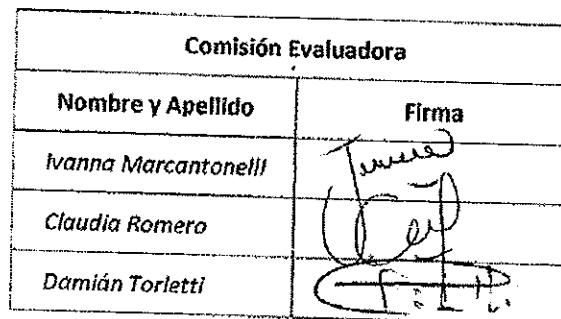 Comisión Evaluadora
Nombre y Apellido Firma
Ivanna Marcantonelli
Claudia Romero
Damián Torletti